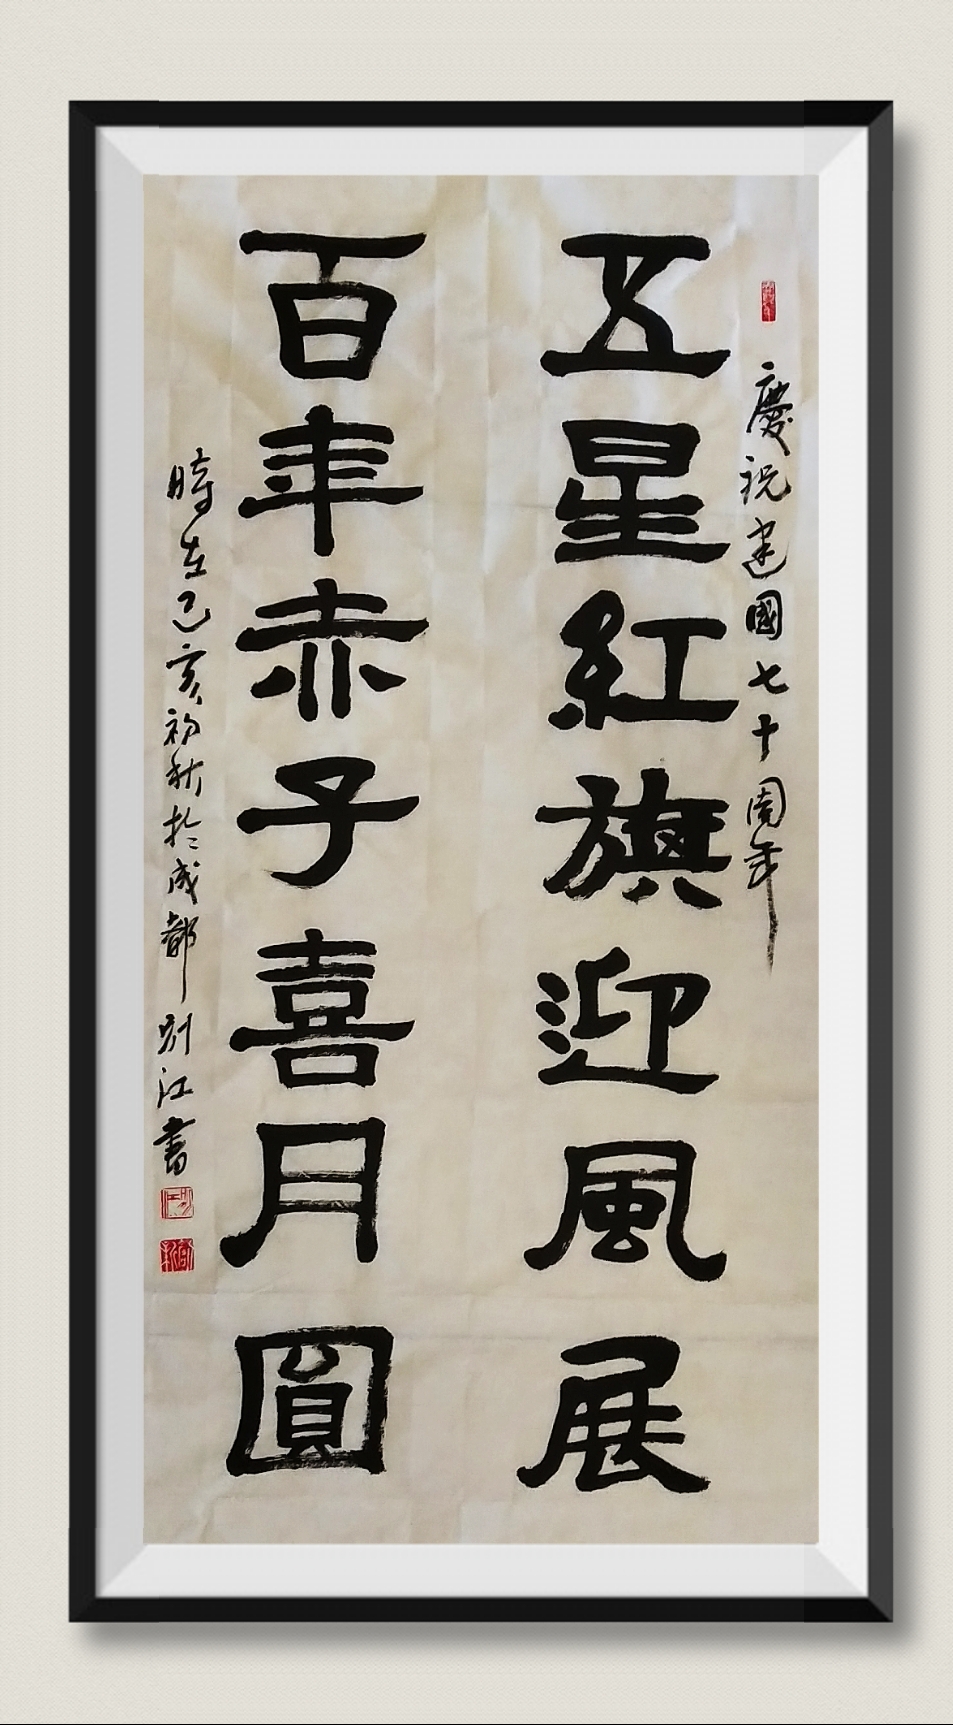 慶祝建國七十周年
五星紅旗迎風展
百年赤子喜月圓
時在己亥初秋於成都 別江書